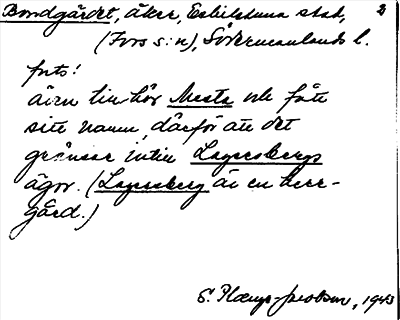 Bondgärdet, åker, Eskilstuna stad, 2
(Fors s:n), Södermanlands l.
forts!
även tillhör Mesta och fått
sitt namn, därför att det
gränsar intill Lagersbergs
ägor. (Lagersberg är en herr-
gård.)
S. Jacobson, 1943